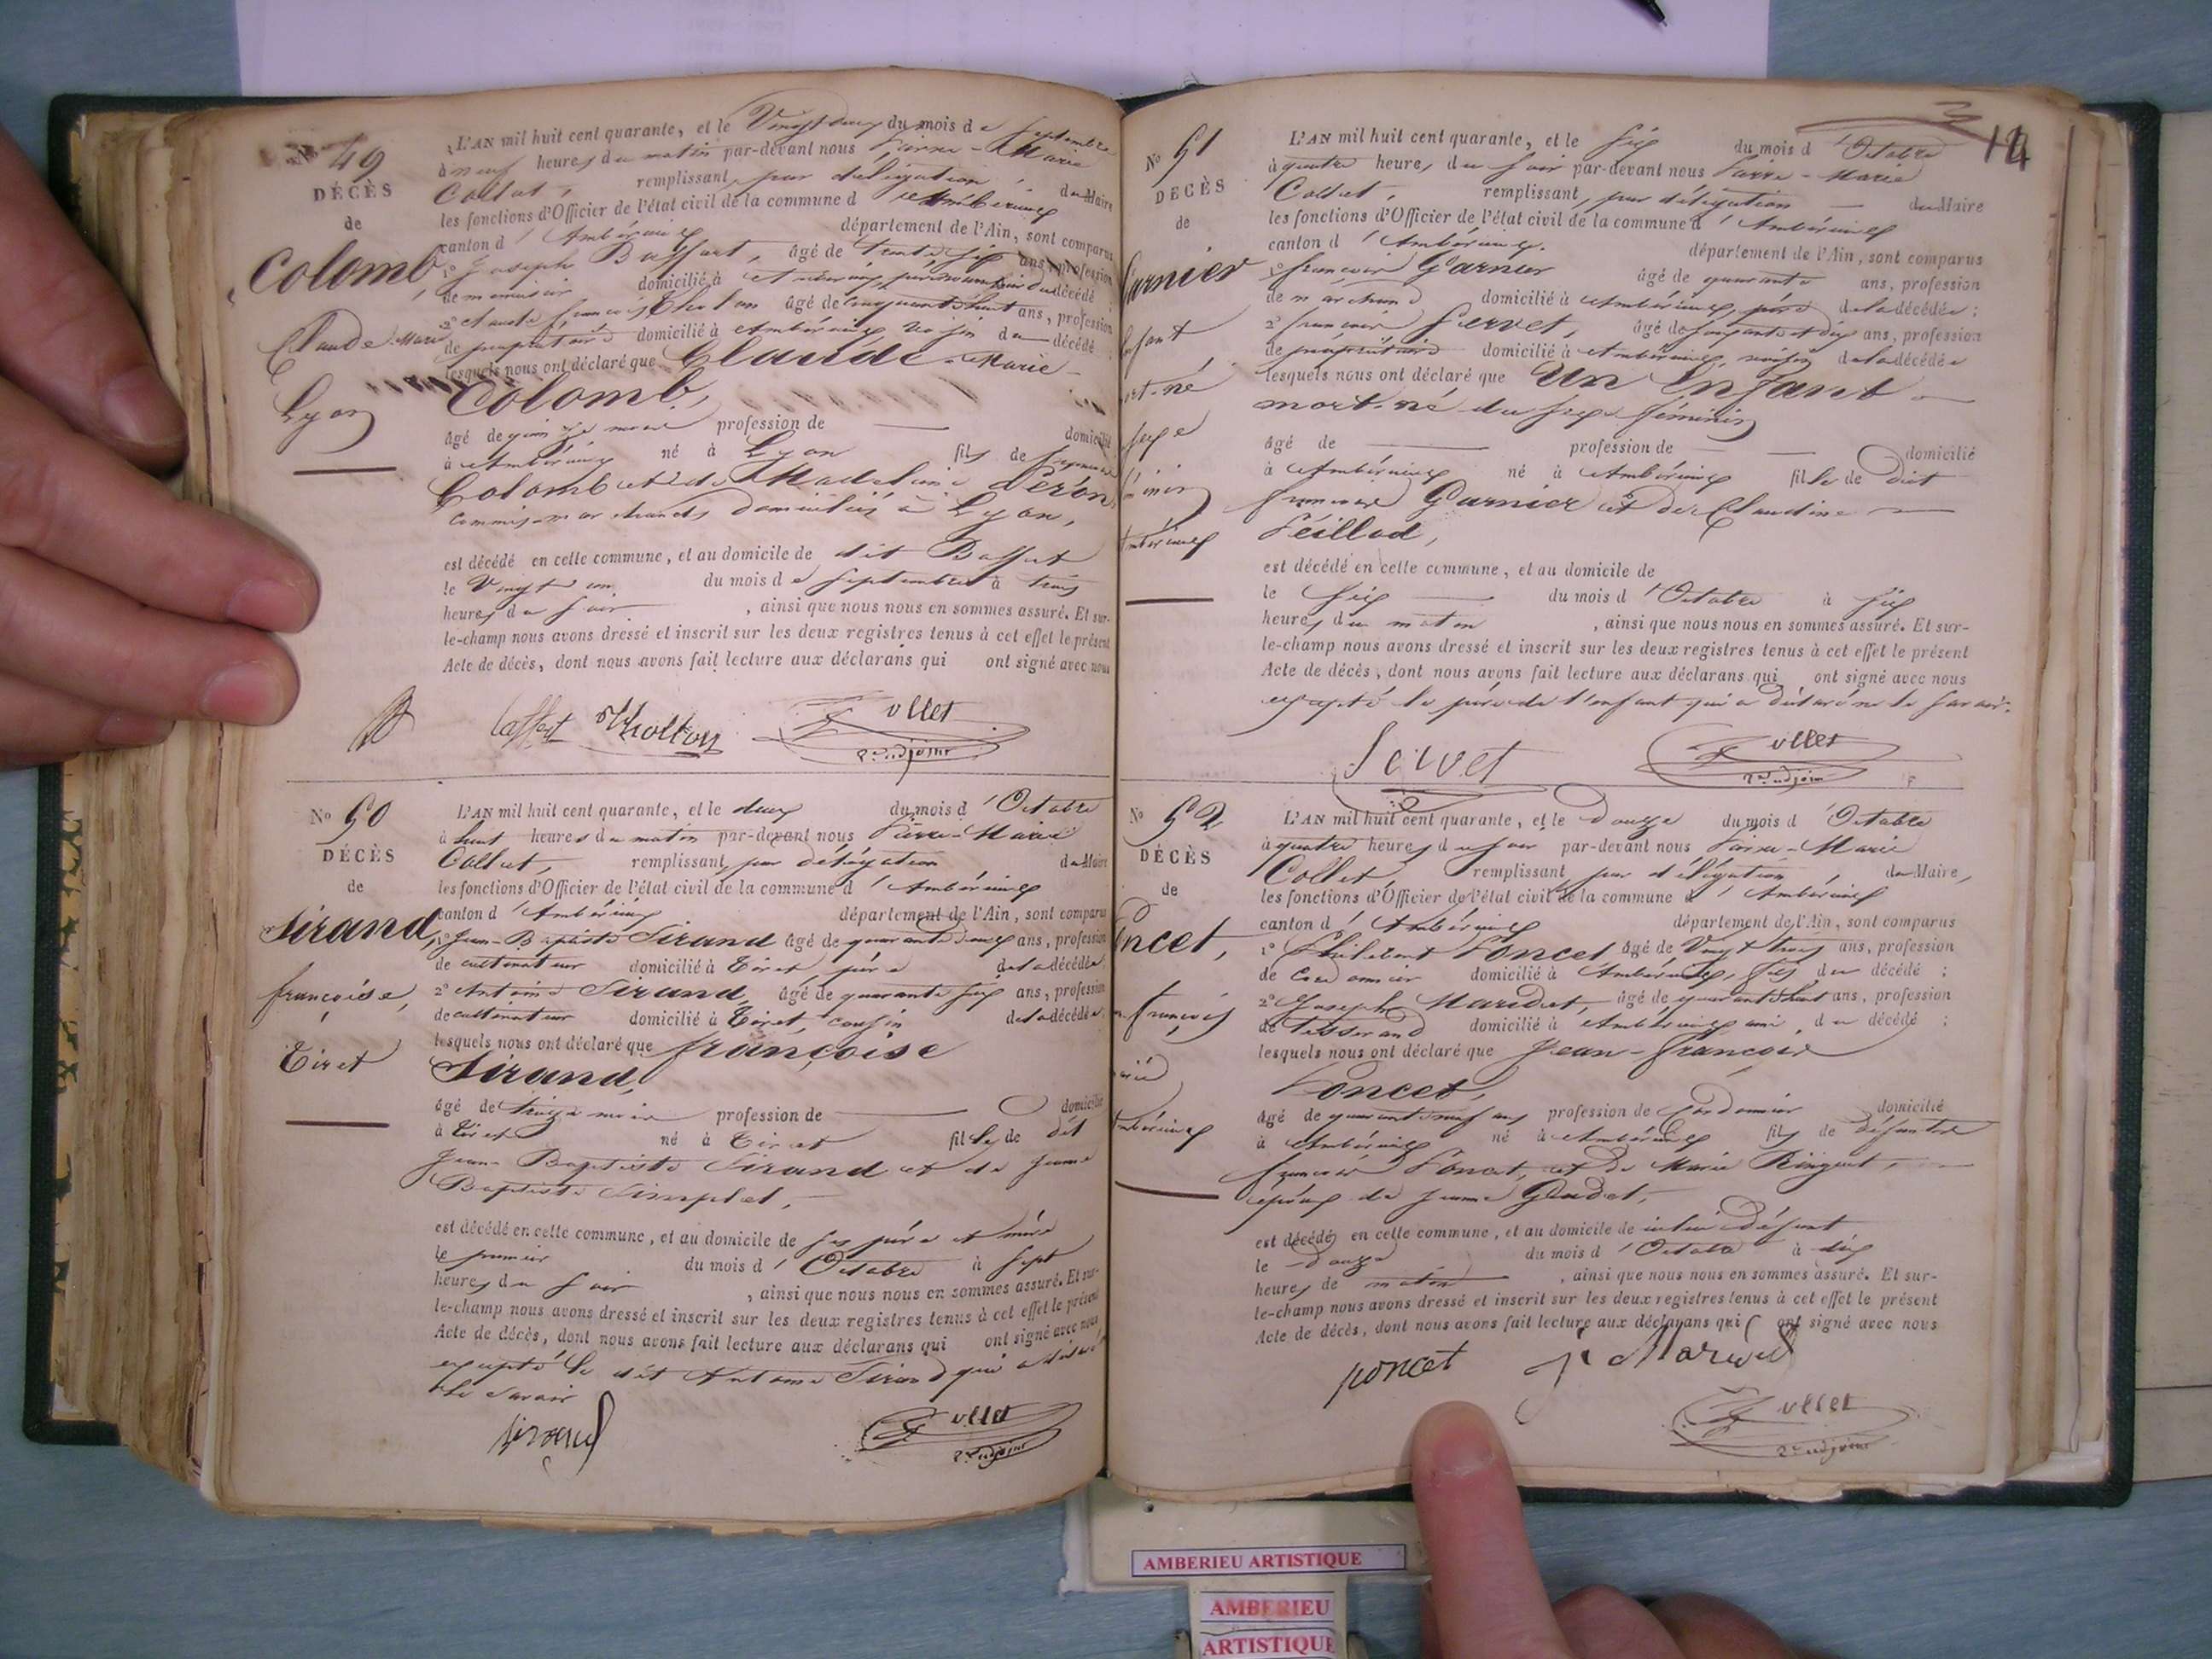 N° 49
DÉCÈS
de
Colomb,
Claude-Marie
Lyon
L'AN mil huit cent quarante, et le Vingt deux du mois de Septembre
à neuf heures du matin par-devant nous Pierre-Marie
Collet, remplissant, par délégation du Maire
les fonctions d'Officier de l'état civil de la commune d'Ambérieux
canton d'Ambérieux département de l'Ain, sont comparus
1° Joseph Baffert, âgé de trente six ans, profession
de menuisier domicilié à Ambérieux, père nourricier du décédé
2° Claude françois Tholon âgé de cinquante huit ans, profession
de propriétaire domicilié à Ambérieux voisin du décédé
lesquels nous ont déclaré que Claude-Marie
Colomb,
âgé de quinze mois profession de domicilié
à Ambérieux né à Lyon fils de
Colomb et de Madeleine Péron,
commis marchands domiciliés à Lyon,
est décédé en cette commune, et au domicile de dit Baffert
le Vingt un du mois de Septembre à trois
heures du soir, ainsi que nous nous en sommes assuré. Et sur-
le-champ nous avons dressé et inscrit sur les deux registres tenus à cet effet le présent
Acte de décès, dont nous avons fait lecture aux déclarans qui ont signé avec nous
Baffert Tholton Collet
2e adjoint
N° 50
DÉCÈS
de
Sirand,
françoise,
Tiret
L'AN mil huit cent quarante, et le deux du mois d'Octobre
à huit heures du matin par-devant nous Pierre-Marie
Collet, remplissant, par délégation du Maire
les fonctions d'Officier de l'état civil de la commune d'Ambérieux
canton d'Ambérieux département de l'Ain, sont comparus
1° Jean-Baptiste Sirand âgé de quarante deux ans, profession
de cultivateur domicilié à Tiret, père de la décédée
2° Antoine Sirand, âgé de quarante six ans, profession
de cultivateur domicilié à Tiret, cousin de la décédée
lesquels nous ont déclaré que françoise
Sirand,
âgé de treize mois profession de domicilié
à Tiret né à Tiret fille de dit
Jean-Baptiste Sirand et de Jeanne
Baptiste Simplet,
est décédé en cette commune, et au domicile de ses père et mère
le premier du mois d'Octobre à sept
heures du soir, ainsi que nous nous en sommes assuré. Et sur-
le-champ nous avons dressé et inscrit sur les deux registres tenus à cet effet le présent
Acte de décès, dont nous avons fait lecture aux déclarans qui ont signé avec nous
excepté le dit Antoine Sirand qui a déclaré
ne le savoir
Sirand Collet
2e adjoint
12
N° 51
DÉCÈS
de
Garnier
Enfant
mort-né
sexe
féminin
Ambérieux
L'AN mil huit cent quarante, et le six du mois d'Octobre
à quatre heures du soir par-devant nous Pierre-Marie
Collet, remplissant, par délégation du Maire
les fonctions d'Officier de l'état civil de la commune d'Ambérieux
canton d'Ambérieux. département de l'Ain, sont comparus
1° françois Garnier âgé de quarante ans, profession
de marchand domicilié à Ambérieux, père de la décédée;
2° françois Servet, âgé de soixante et dix ans, profession
de propriétaire domicilié à Ambérieux, voisin de la décédée
lesquels nous ont déclaré que Un Enfant
mort-né du sexe féminin
âgé de profession de domicilié
à Ambérieux né à Ambérieux fille de dit
françois Garnier et de Claudine
Peillod,
est décédé en cette commune, et au domicile de
le six du mois d'Octobre à six
heures du matin, ainsi que nous nous en sommes assuré. Et sur-
le-champ nous avons dressé et inscrit sur les deux registres tenus à cet effet le présent
Acte de décès, dont nous avons fait lecture aux déclarans qui ont signé avec nous
excepté le père de l'enfant qui a déclaré ne le savoir.
Servet Collet
2e adjoint
N° 52
DÉCÈS
de
Poncet,
Jean françois
Marié
Ambérieux
L'AN mil huit cent quarante, et le Douze du mois d'Octobre
à quatre heures du soir par-devant nous Pierre-Marie
Collet, remplissant, par délégation, du Maire,
les fonctions d'Officier de l'état civil de la commune d'Ambérieux
canton d'Ambérieux département de l'Ain, sont comparus
1° Philibert Poncet âgé de Vingt trois ans, profession
de Cordonnier domicilié à Ambérieux, fils du décédé;
2° Joseph Maridet, âgé de quarante huit ans, profession
de Tisserand domicilié à Ambérieux ami, du décédé;
lesquels nous ont déclaré que Jean-françois
Poncet,
âgé de quarante neuf ans profession de Cordonnier domicilié
à Ambérieux né à Ambérieux fils de défunts
françois Poncet, et de Marie Ringuet,
époux de Jeanne Gudet,
est décédé en cette commune, et au domicile de celui défunt
le douze du mois d'Octobre à dix
heures de matin, ainsi que nous nous en sommes assuré. Et sur-
le-champ nous avons dressé et inscrit sur les deux registres tenus à cet effet le présent
Acte de décès, dont nous avons fait lecture aux déclarans qui ont signé avec nous
poncet J. Maridet
Collet
2e adjoint
AMBERIEU ARTISTIQUE
AMBERIEU
ARTISTIQUE